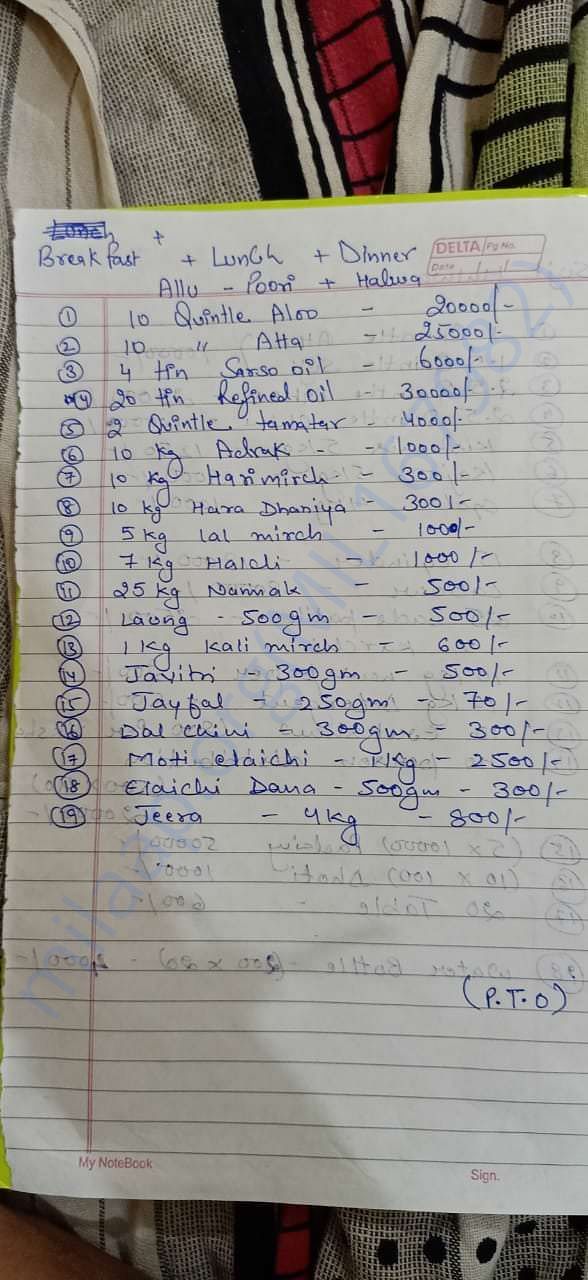 Breakfast + + Lunch + Dinner
DELTA Pg No.
Date
Allu - Poori + Halwa
① 10 Quintle Aloo - 20000/-
② 10 " Atta - 25000/-
③ 4 tin Sarso oil - 6000/-
④ 20 tin Refined oil - 30000/-
⑤ 2 Quintle tamatar - 4000/-
⑥ 10 kg Adrak - - 1000/-
⑦ 10 kg Harimirch - 300/-
⑧ 10 kg Hara Dhaniya - 300/-
⑨ 5 kg lal mirch - 1000/-
⑩ 7 kg Haldi - 1000/-
⑪ 25 kg Nammak - 500/-
⑫ Laong - 500gm - 500/-
⑬ 1 kg kali mirch - 600/-
⑭ Javitri - 300gm - 500/-
⑮ Jayfal - 250gm - 70/-
⑯ Dal chini - 300gm - 300/-
⑰ Moti elaichi - 1kg - 2500/-
⑱ Elaichi Dana - 500gm - 300/-
⑲ Jeera - 4kg - 800/-
(P.T.O)
My NoteBook
Sign.